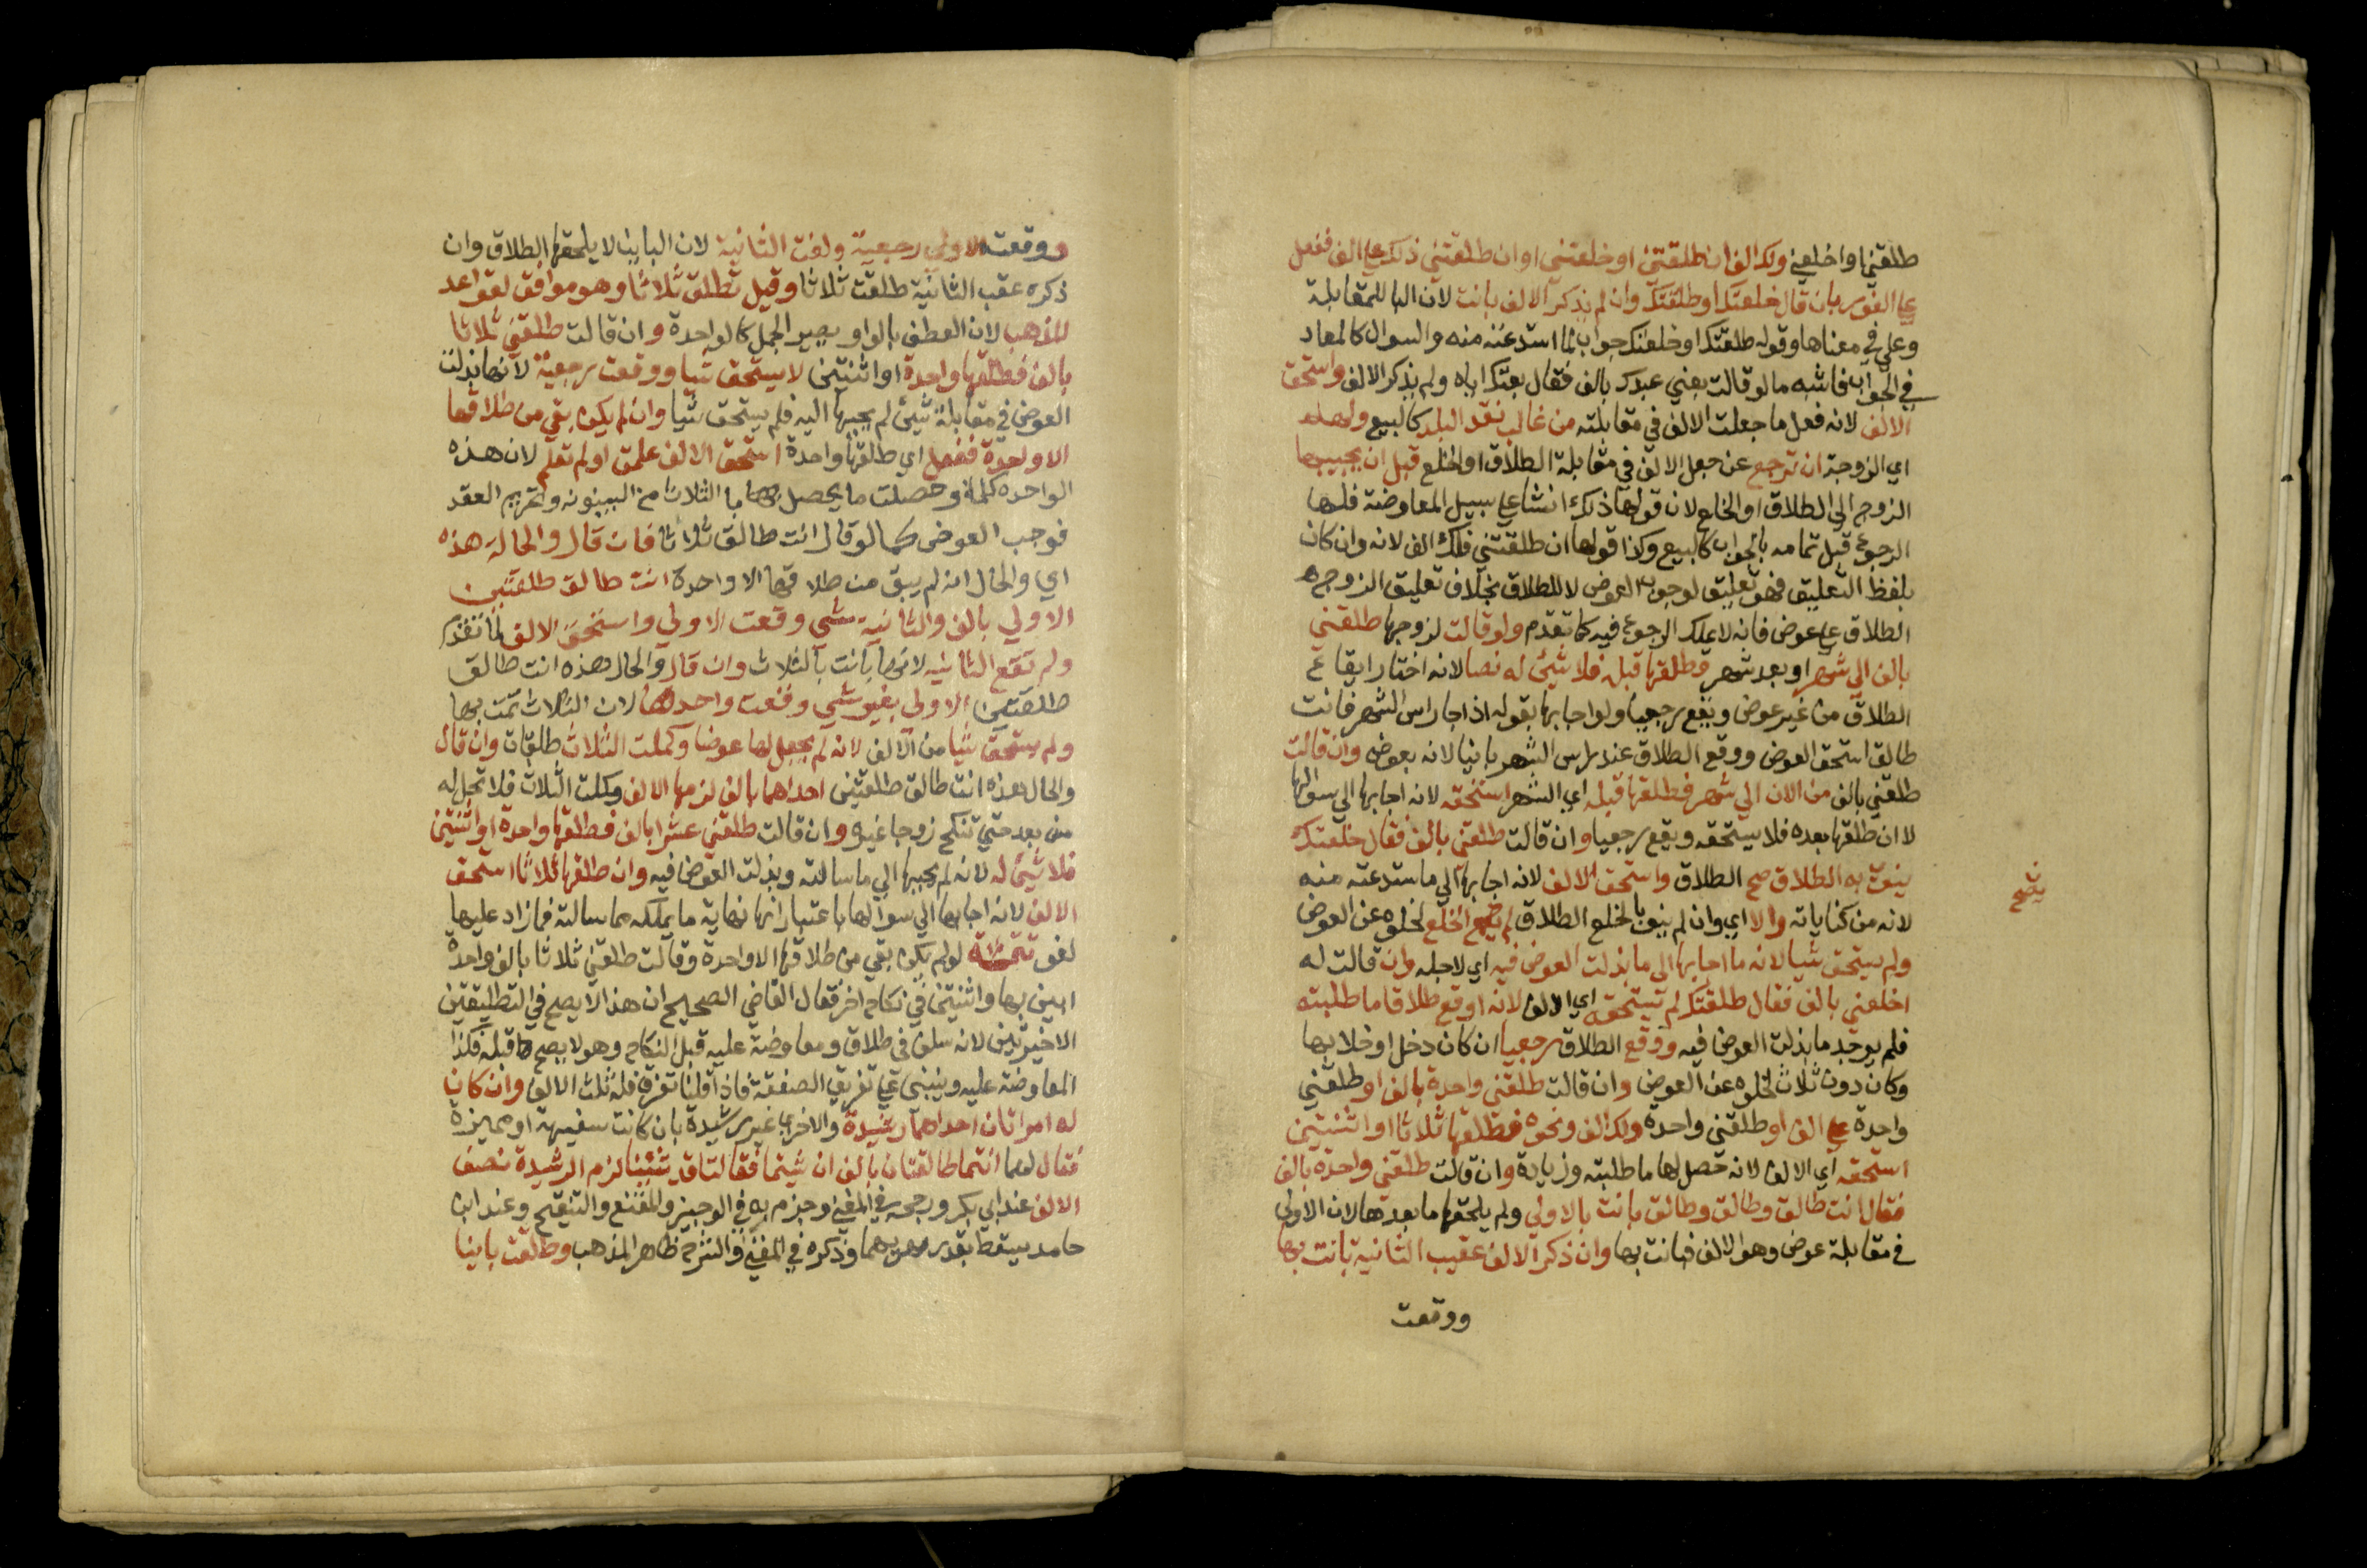 طلقني او اخلعني ولك الف ان طلقتني او خلعتني او ان طلقتني ذلك علي الف ففعل
علي الفور بان قال خلعتك او طلقتك وان لم يذكر الالف بانت لان البا للمقابلة
وعلي في معناها وقوله طلقتك او خلعتك جواب لما استدعته منه والسوال كالمعاد
في الجواب فاشبه ما لو قالت بعني عبدك بالف فقال بعتك اياه ولم يذكر الالف واستحق
الالف لانه فعل ما جعلت الالف في مقابلته من غالب نقد البلد كالبيع ولها
اي الزوجة ان ترجع عن جعل الالف في مقابلة الطلاق او الخلع قبل ان يجيبها
الزوج الي الطلاق او الخلع لان قولها ذلك انشا علي سبيل المعاوضة فلها
الرجوع قبل تمامه بالجواب كالبيع وكذا قولها ان طلقتني فلك الف لانه وان كان
بلفظ التعليق فهو تعليق لوجوب العوض لا للطلاق بخلاف تعليق الزوج
الطلاق علي عوض فانه لا يملك الرجوع فيه كما تقدم ولو قالت لزوجها طلقني
بالف الي شهر او بعد شهر فطلقها قبله فلا شيئ له نصا لانه اختار ايقاع
الطلاق من غير عوض ويقع رجعيا ولو اجابها بقوله اذا جا راس الشهر فانت
طالق استحق العوض ووقع الطلاق عند راس الشهر باينا لانه بعوض وان قالت
طلقني بالف من الان الي شهر فطلقها قبله اي الشهر استحقه لانه اجابها الي سوالها
لا ان طلقها بعده فلا يستحقه ويقع رجعيا وان قالت طلقني بالف فقال خلعتك
ينوي به الطلاق صح الطلاق واستحق الالف لانه اجابها الي ما استدعته منه
لانه من كناياته والا اي وان لم ينو بالخلع الطلاق لم يصح الخلع لخلوه عن العوض
يصح
ولم يستحق شيا لانه ما اجابها الي ما بذلت العوض فيه اي لاجله وان قالت له
اخلعني بالف فقال طلقتك لم يستحقه اي الالف لانه اوقع طلاقا ما طلبته
فلم يوجد ما بذلت العوض فيه ووقع الطلاق رجعيا ان كان دخل او خلا بها
وكان دون ثلاث لخلوه عن العوض وان قالت طلقني واحدة بالف او طلقني
واحدة علي الف او طلقني واحدة ولك الف ونحوه فطلقها ثلاثا او اثنتين
استحقه اي الالف لانه حصل لها ما طلبته وزيادة وان قالت طلقني واحدة بالف
فقال انت طالق وطالق وطالق بانت بالاولي ولم يلحقها ما بعدها لان الاولي
في مقابلة عوض وهو الالف فبانت بها وان ذكر الالف عقيب الثانية بانت بها
ووقعت
ووقعت الاولي رجعية ولغت الثانية لان الباين لا يلحقها الطلاق وان
ذكره عقب الثانية طلقت ثلاثا وقيل تطلق ثلاثا وهو موافق لقواعد
المذهب لان العطف بالواو يصير الجمل كالواحدة وان قالت طلقني ثلاثا
بالف فطلقها واحدة او اثنتين لا يستحق شيا ووقعت رجعية لانها بذلت
العوض في مقابلة شيئ لم يجبها اليه فلم يستحق شيا وان لم يكن بقي من طلاقها
الا واحدة ففعل اي طلقها واحدة استحق الالف علمت او لم تعلم لان هذه
الواحدة كملت وحصلت ما يحصل بالثلاث من البينونه وتحريم العقد
فوجب العوض كما لو قال انت طالق ثلاثا فان قال والحالة هذه
اي والحال انه لم يبق من طلاقها الا واحدة انت طالق طلقتين
الاولي بالف والثانية بغير شي وقعت الاولي واستحق الالف لما تقدم
ولم تقع الثانيه لانها بانت بالثلاث وان قال والحال هذه انت طالق
طلقتين الاولي بغير شي وقعت وحدها لان الثلاث تمت بها
ولم يستحق شيا من الالف لانه لم يجعل لها عوضا وكملت الثلاث طلقات وان قال
والحال هذه انت طالق طلقتين احداهما بالف لزمها الالف وكملت الثلاث فلا تحل له
من بعد حتي تنكح زوجا غيره وان قالت طلقني عشرا بالف فطلقها واحدة او اثنتين
فلا شيئ له لانه لم يجبها الي ما سالته وبذلت العوض فيه وان طلقها ثلاثا استحق
الالف لانه اجابها الي سوالها باعتبار انها نهاية ما يملكه مما سالته فما زاد عليها
لغو تتمة لو لم يكن بقي من طلاقها الا واحدة وقالت طلقني ثلاثا بالف واحدة
ابين بها واثنتين في نكاح اخر فقال القاضي الصحيح ان هذا لا يصح في التطليقتين
الاخيرتين لانه سلف في طلاق ومعاوضة عليه قبل النكاح وهو لا يصح قبله فكذا
المعاوضة عليه وينبني علي تفريق الصفقة فاذا قلنا تفرق فله ثلث الالف وان كان
له امراتان احداهما رشيدة والاخري غير رشيدة بان كانت سفيهة او مميزة
فقال لهما انتما طالقتان بالف ان شيتما فقالتا قد شئنا لزم الرشيدة نصف
الالف عند ابي بكر ورجحه في المغني وجزم به في الوجيز والمقنع والتنقيح وعند ابن
حامد يسقط بقدر مهريهما وذكره في المغني والشرح ظاهر المذهب وطلقت باينا